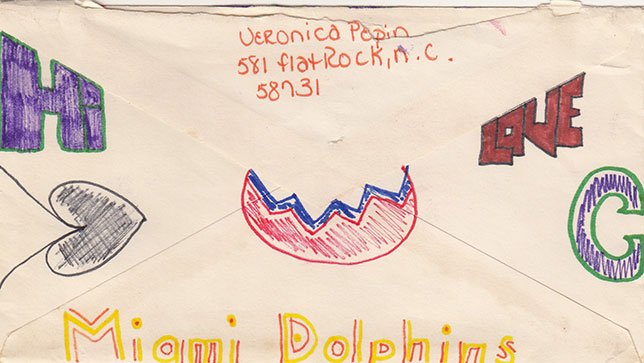 Veronica Pepin
581 flat Rock, N.C.
58731
Hi
LOVE
C
Miami Dolphins